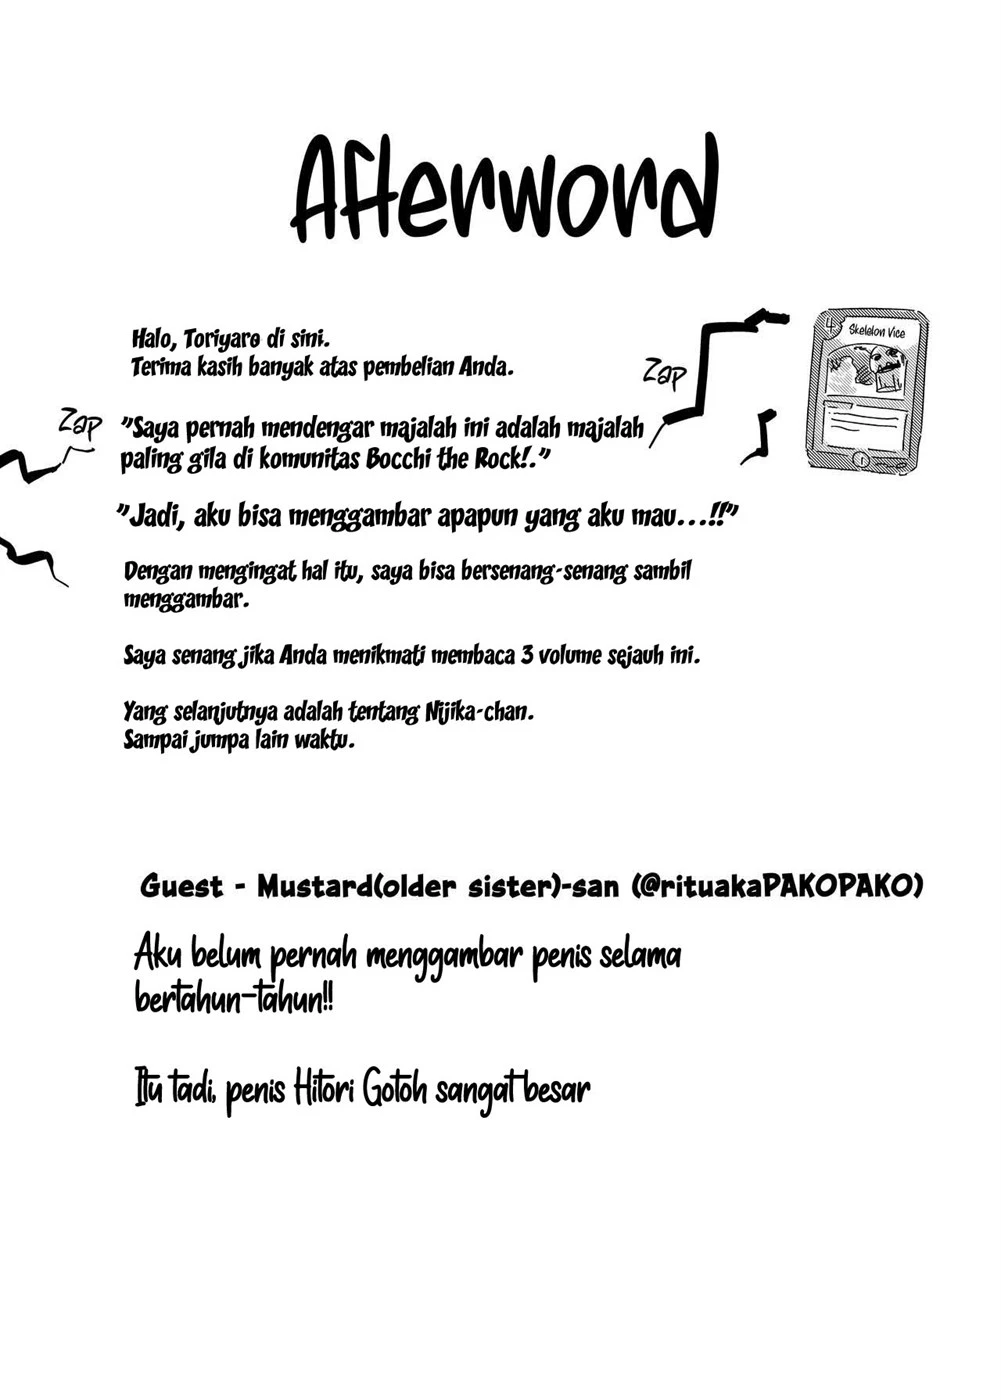 Afterword
Halo, Toriyaro di sini.
Terima kasih banyak atas pembelian Anda.
4
Skeleton Vice
Zap
Zap
"Saya pernah mendengar majalah ini adalah majalah
paling gila di komunitas Bocchi the Rock!."
"Jadi, aku bisa menggambar apapun yang aku mau...!!"
1
Dengan mengingat hal itu, saya bisa bersenang-senang sambil
menggambar.
Saya senang jika Anda menikmati membaca 3 volume sejauh ini.
Yang selanjutnya adalah tentang Nijika-chan.
Sampai jumpa lain waktu.
Guest - Mustard(older sister)-san (@rituakaPAKOPAKO)
Aku belum pernah menggambar penis selama
bertahun-tahun!!
Itu tadi, penis Hitori Gotoh sangat besar